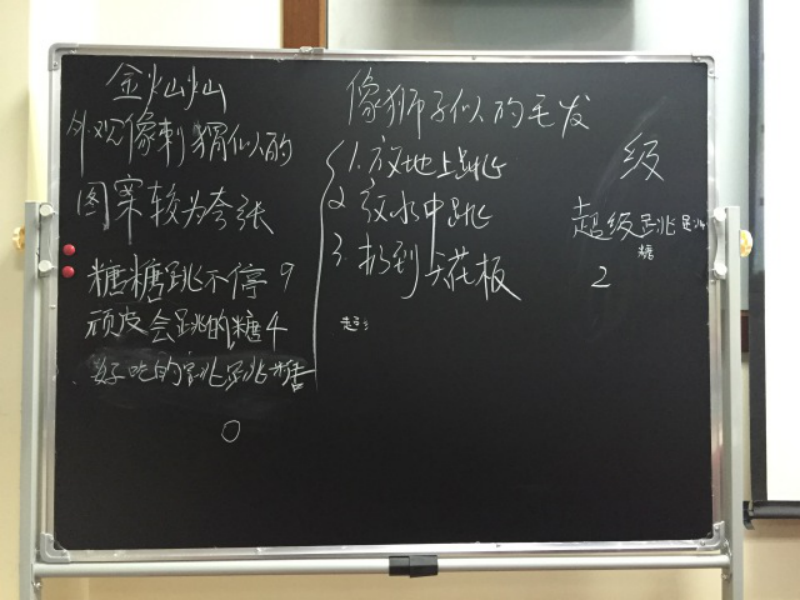 金灿灿
外观像刺猬似的
图案较为夸张
糖糖跳不停 9
顽皮会跳的糖 4
好吃的跳跳糖
0
像狮子似的毛发
1. 放地上跳
2 放水中跳
3. 扔到天花板
级
超级跳跳
糖
2